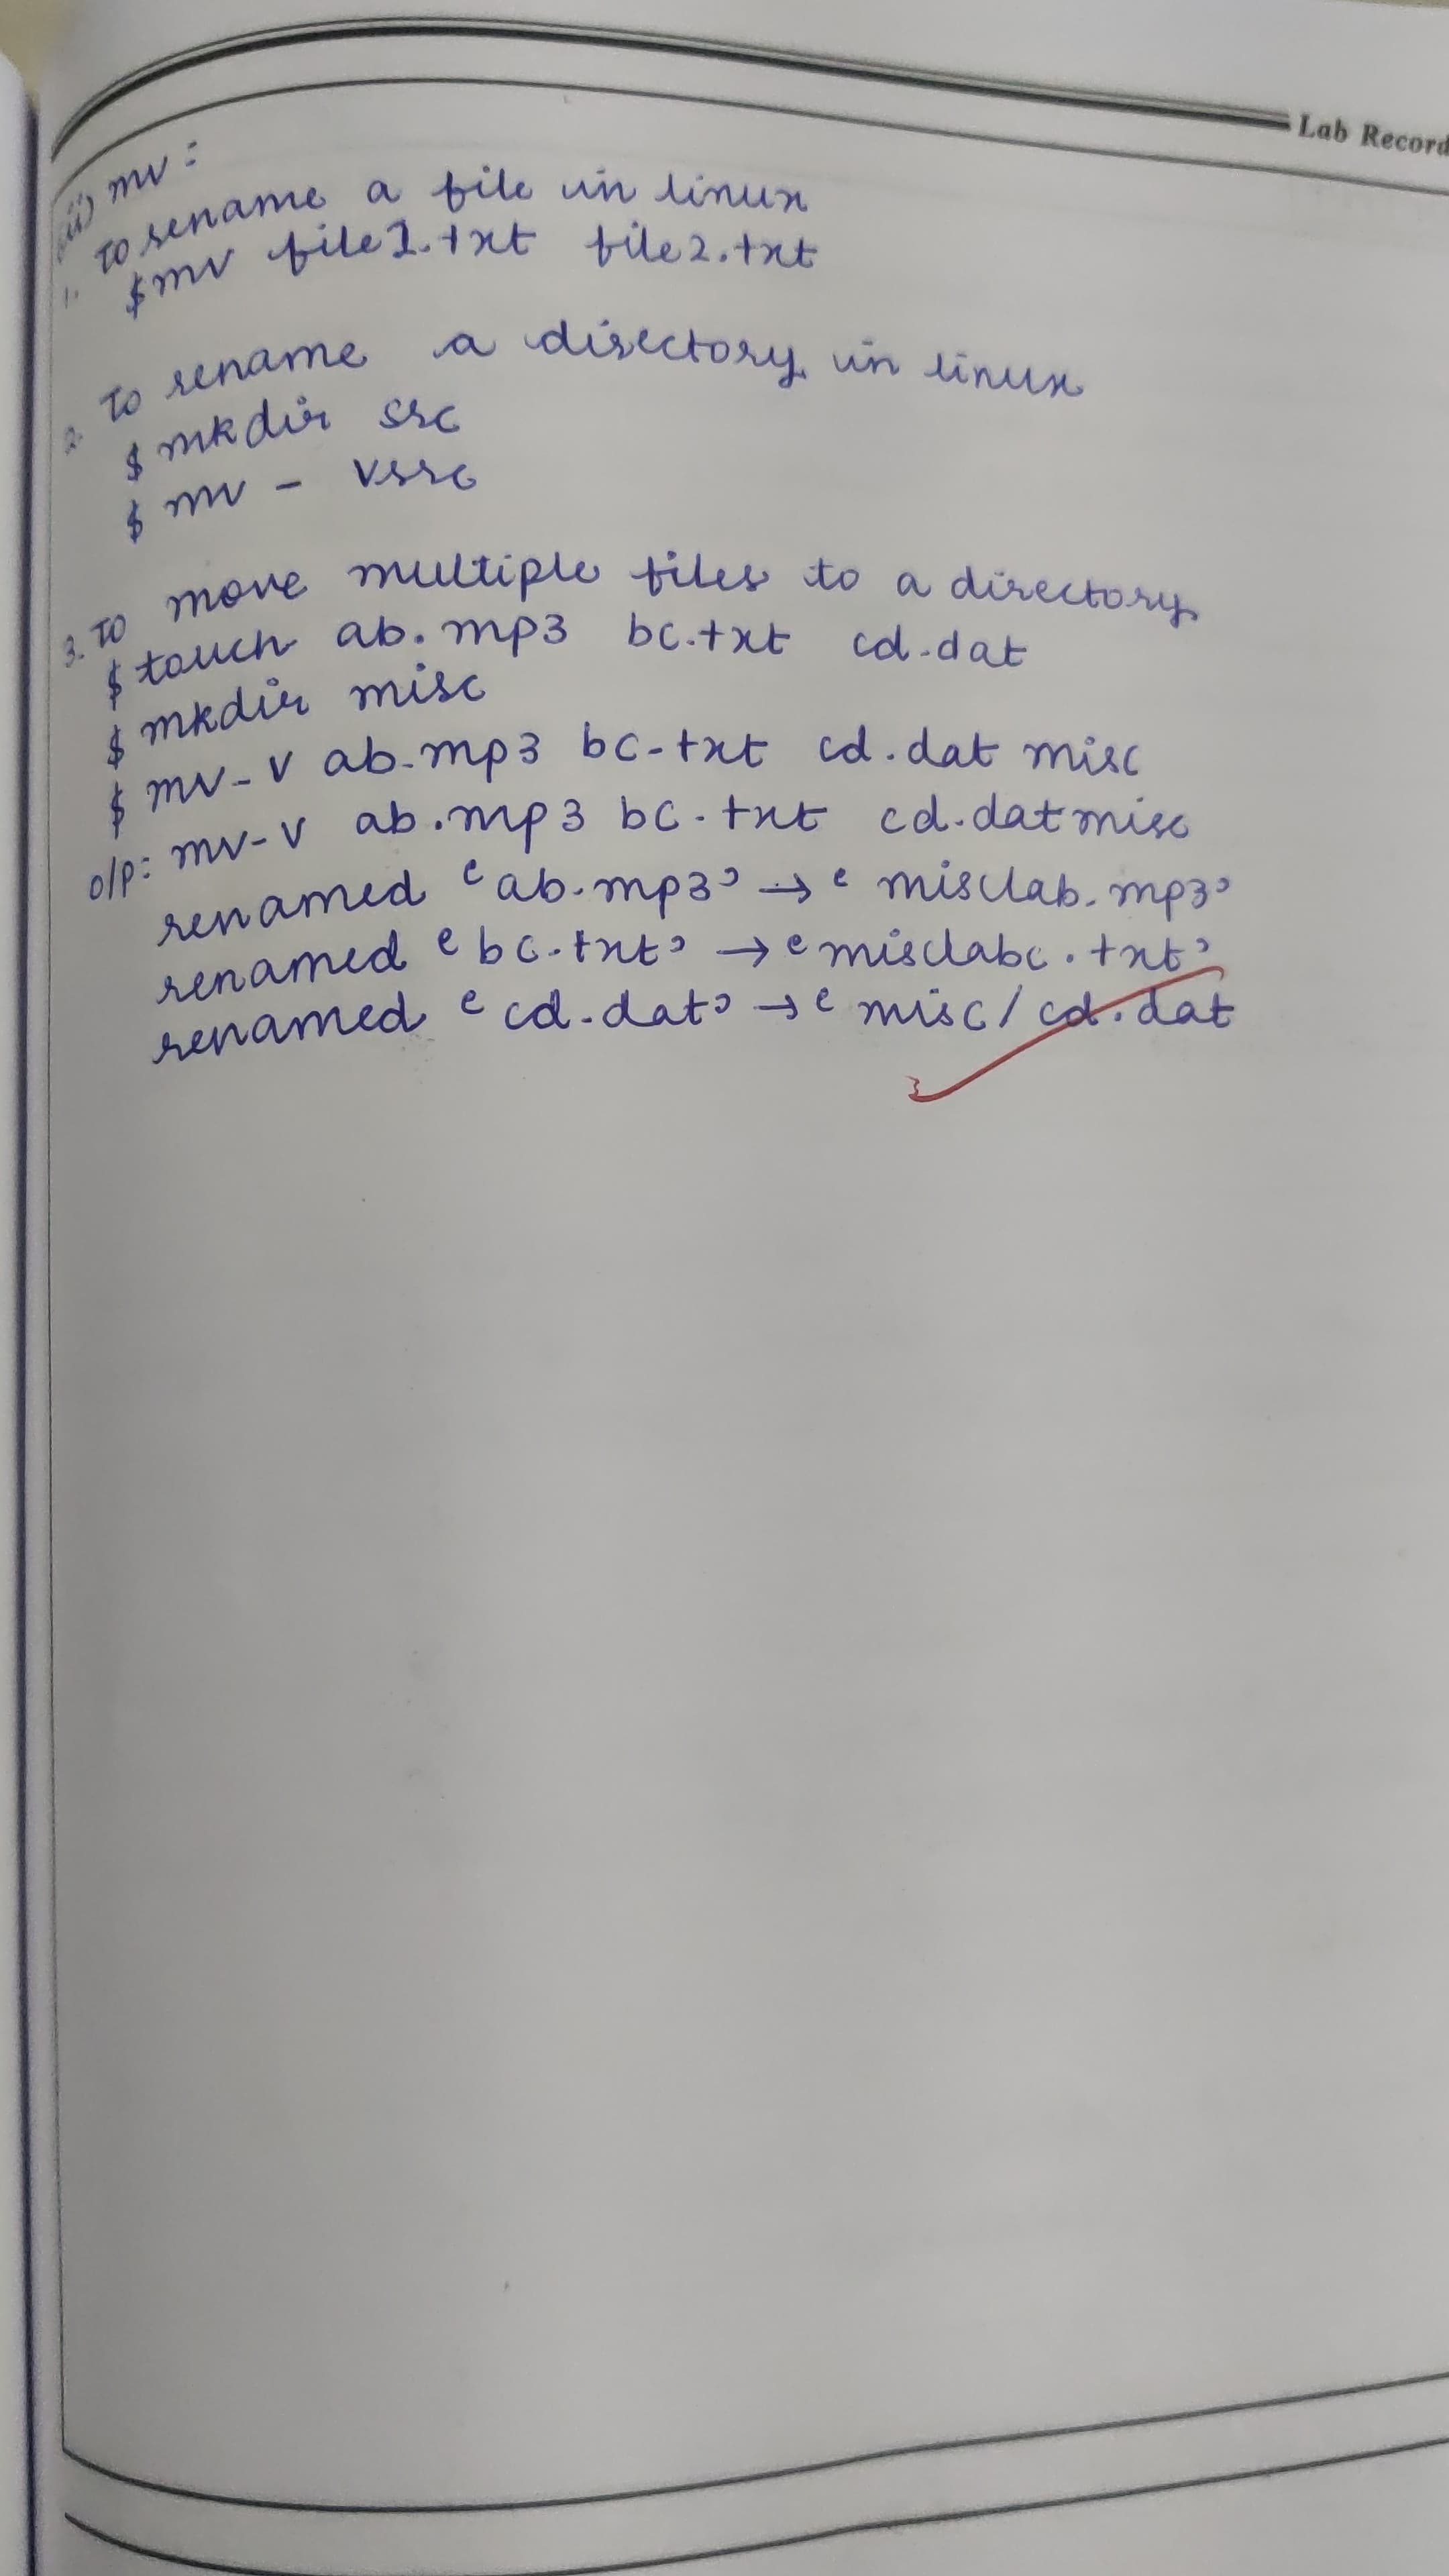 Lab Record
mv:
1. To rename a file in linux
$mv file1.txt file2.txt
2. To rename a directory in linux
$ mkdir src
$ mv - vsrc
3. To move multiple files to a directory
$ touch ab.mp3 bc.txt cd.dat
$ mkdir misc
$ mv-v ab.mp3 bc.txt cd.dat misc
o/p: mv-v ab.mp3 bc.txt cd.datmisc
renamed ‘ab.mp3’ → ‘misc/ab.mp3’
renamed ‘bc.txt’ → ‘misc/abc.txt’
renamed ‘cd.dat’ → ‘misc/cd.dat